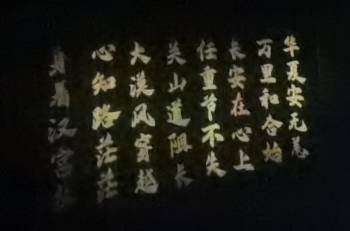 身着汉宫
心知路茫茫
大漠风穿越
关山道阻长
任重节不失
长安在心上
万里和合
华夏安无恙